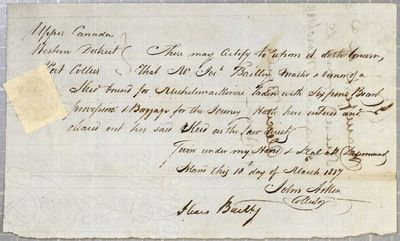 Upper Canada
Western District These may Certify to whom it doth Concern,
Port Collier That Mr. Jos. Bailley, Master & owner of a
Sled bound for Michilimackinac Laden with
provisions & Baggage for the Journey Hath here entered and
cleared out his said Sled as the Law directs
Given under my Hand & Seal at Drummond
Island this 10th day of March 1817
John Askin
Collector
Bailly